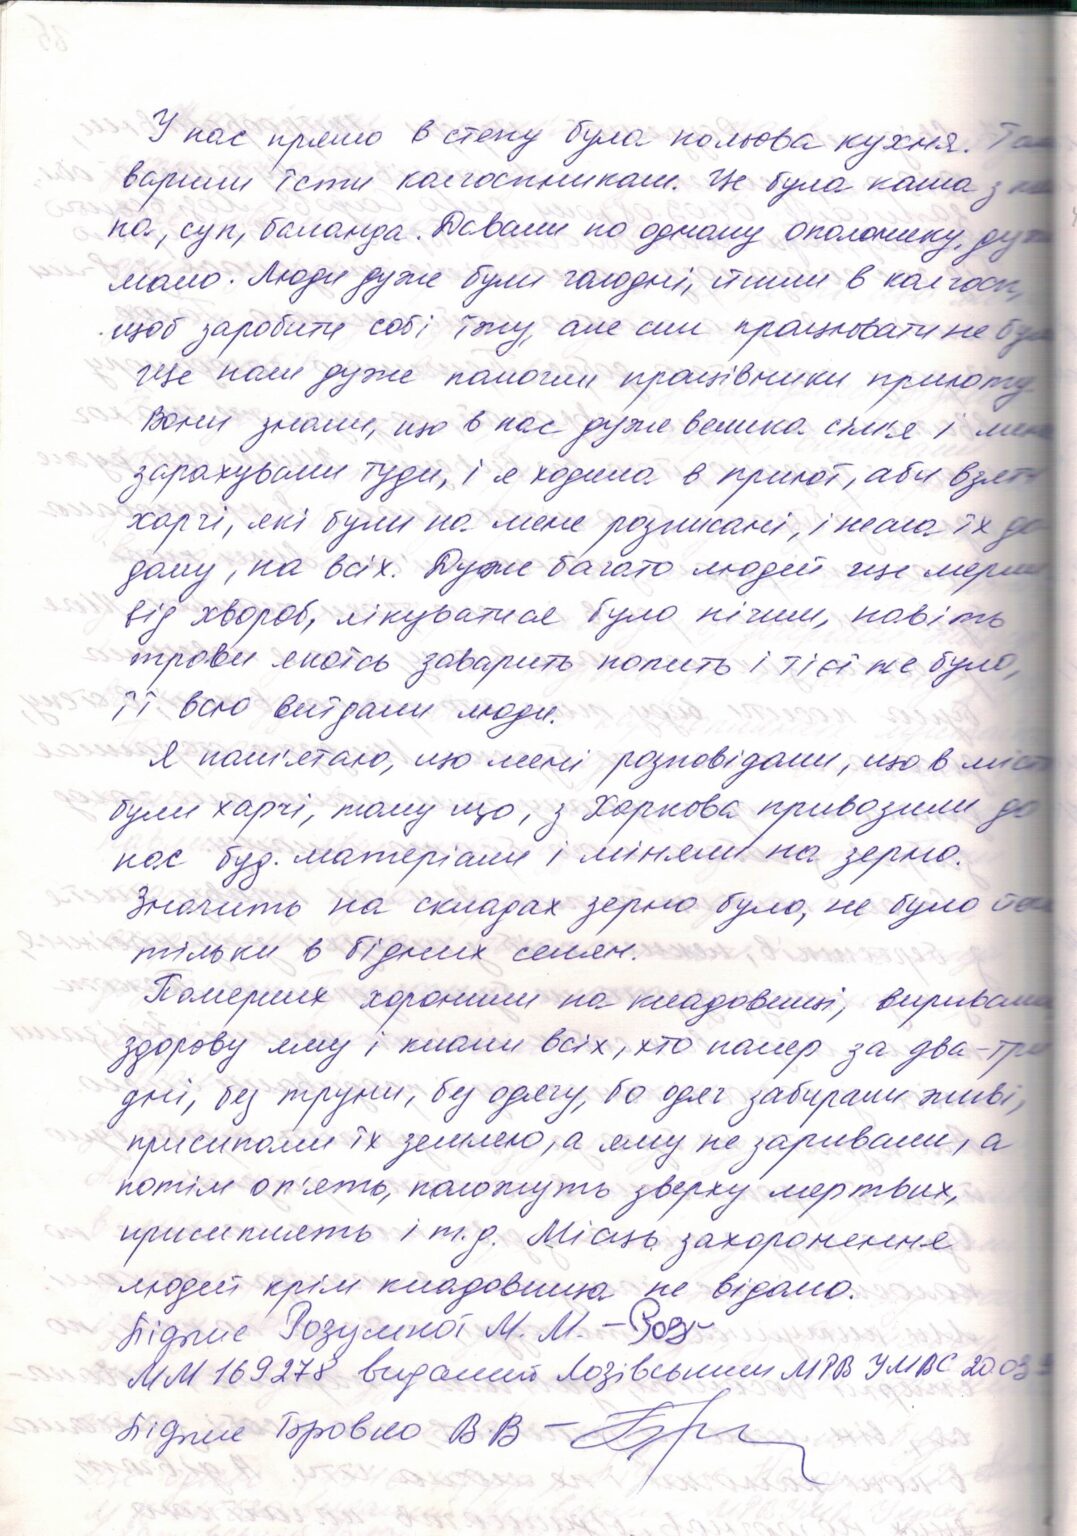 У нас прямо в степу була польова кухня. Там
варили їсти колгоспникам. Це була каша з
на, суп, баланда. Давали по одному ополонику, дуже
мало. Люди дуже були голодні, йшли в колгосп,
щоб заробити собі їжу, але сил працювати не було
Ще нам дуже помогли працівники приюту.
Вони знали, що в нас дуже велика сім'я і мене
зарахували туди, і я ходила в приют, аби взяти
харчі, які були на мене розписані, і несла їх до-
дому, на всіх. Дуже багато людей ще мерли
від хвороб, лікуватися було нічим, навіть
трави якоїсь заварить попить і тієї не було,
її всю виїдали люди.
Я пам'ятаю, що мені розповідали, що в місті
були харчі, тому що, з Харкова привозили до
нас буд. матеріали і міняли на зерно.
Значить на складах зерно було, не було його
тільки в бідних селян.
Померших хоронили на кладовищі, виривали
здорову яму і клали всіх, хто помер за два-три
дні, без труни, без одягу, бо одяг забирали живі,
присипали їх землею, а яму не заривали, а
потім оп'ять, положуть зверху мертвих,
присиплять і т.д. Місць захоронення
людей крім кладовища не відомо.
Підпис Розумної М. М. – Роз
ММ 169278 виданий Лозівським МРВ УМВС 20.03
Підпис Бровко В В –